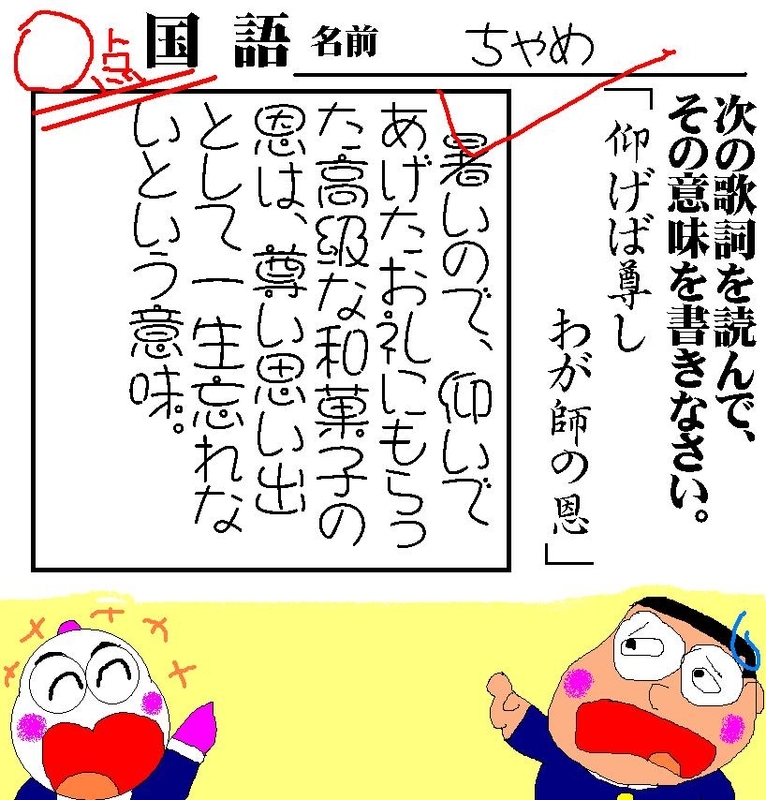 国語 名前 ちゃめ
〇点
次の歌詞を読んで、
その意味を書きなさい。
「仰げば尊し
わが師の恩」
暑いので、仰いで
あげたお礼にもらっ
た高級な和菓子の
恩は、尊い思い出
として一生忘れな
いという意味。